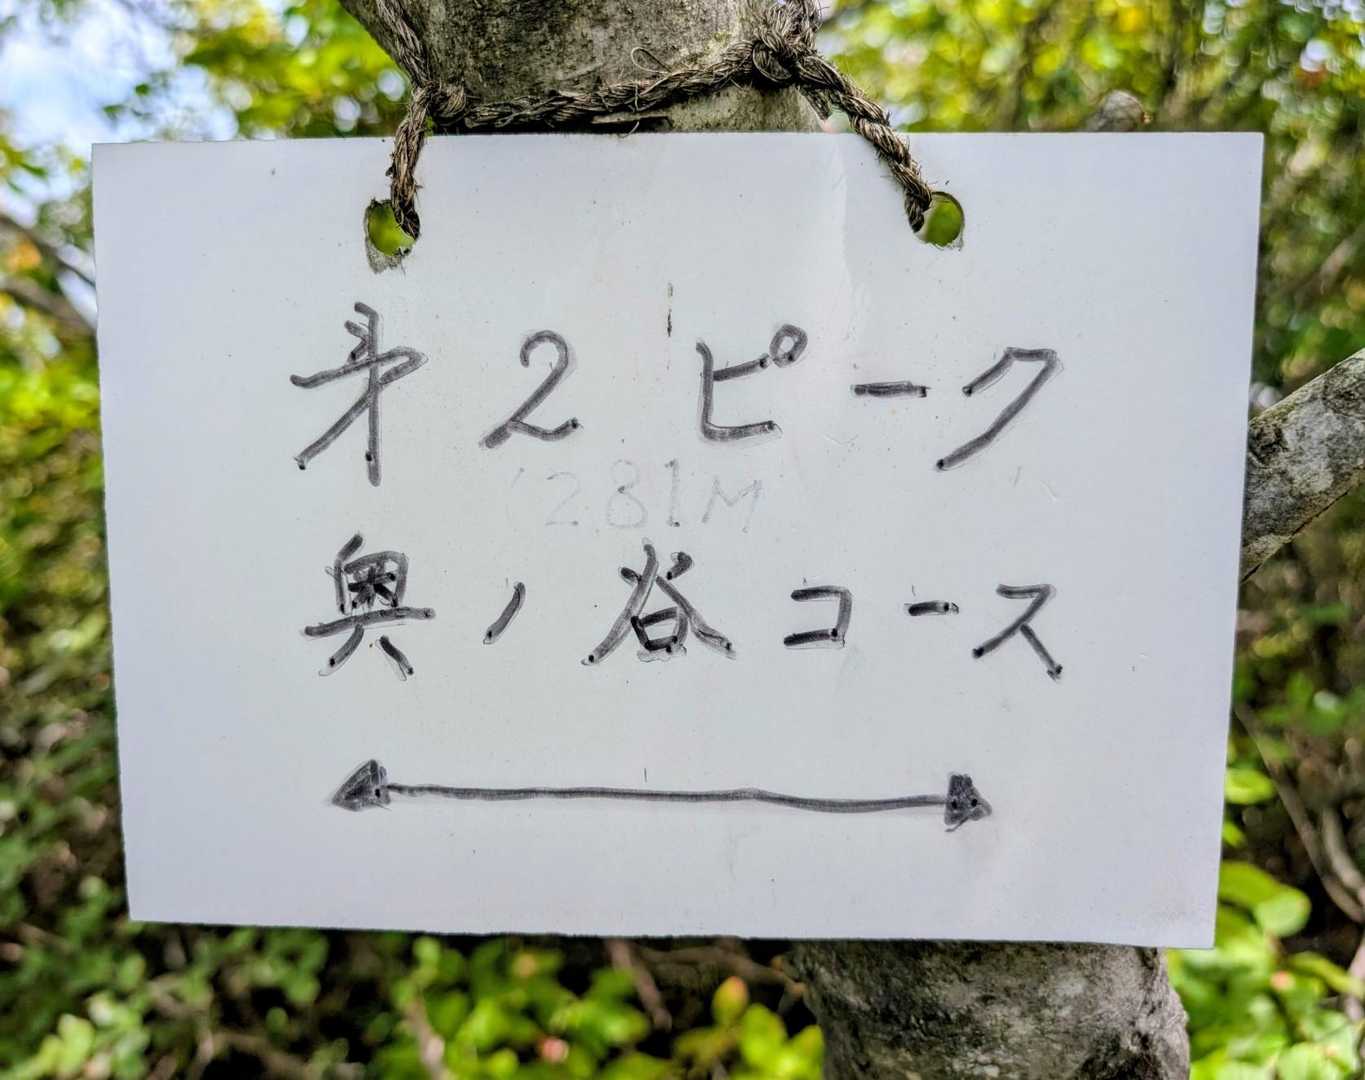 㐧2ピーク
281M
奥ノ谷コース